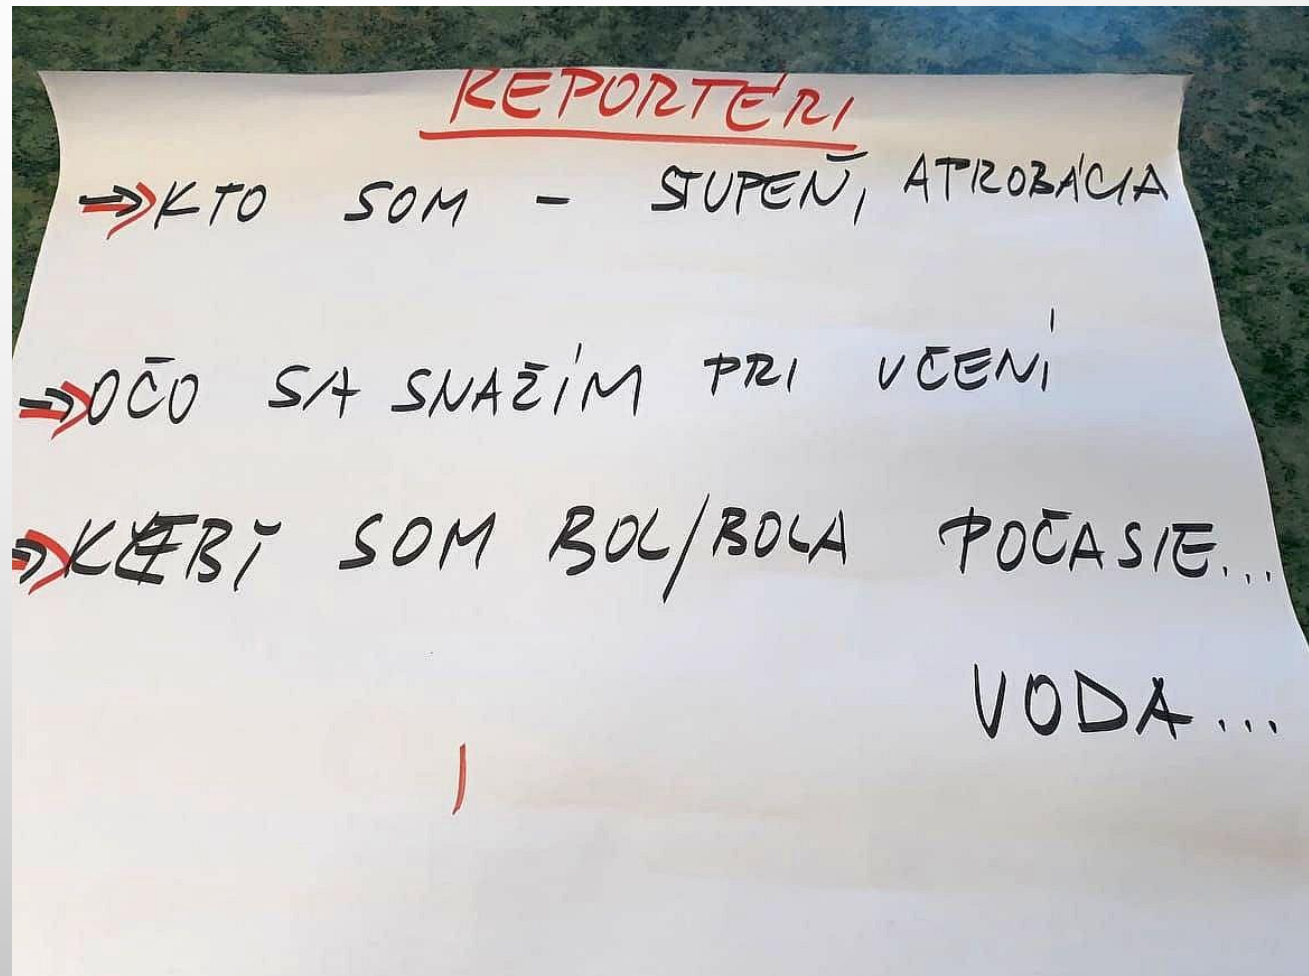 REPORTÉRI
⇒ KTO SOM - STUPEŇ, APROBÁCIA
⇒ OČO SA SNAŽÍM PRI UČENÍ
⇒ KEBY SOM BOL/BOLA POČASIE...
VODA...